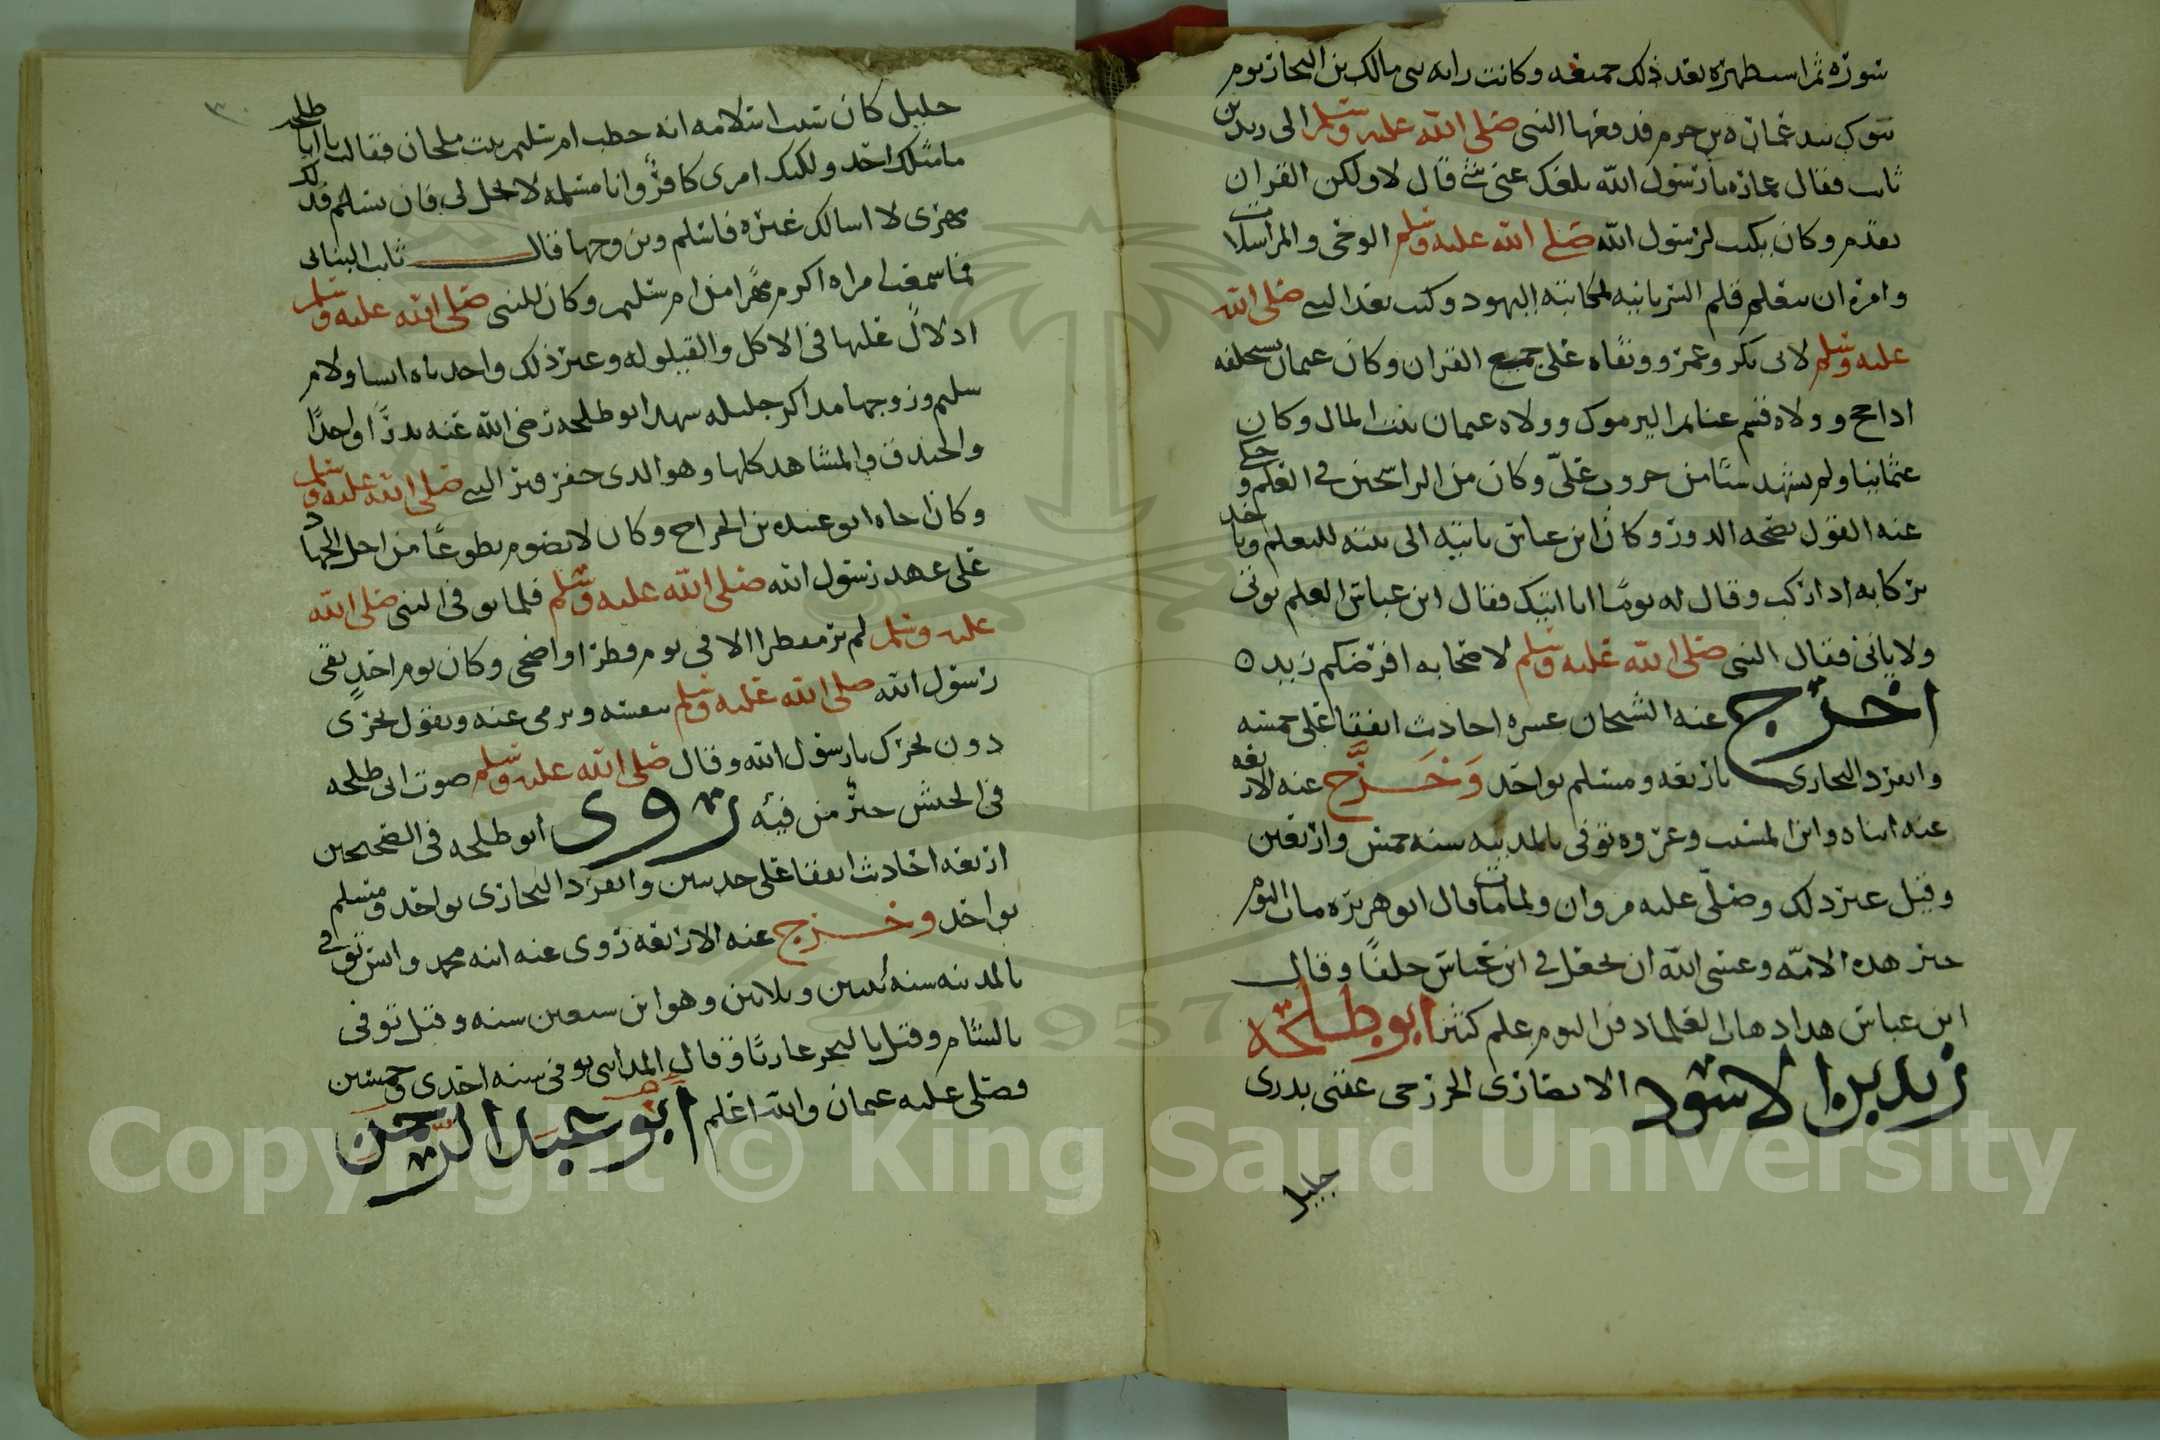 سورة ثم استظهره بعد ذلك جميعه وكانت راية بني مالك بن النجار يوم
تبوك بيد عمارة بن حزم فدفعها النبي صلى الله عليه وسلم الى زيد بن
ثابت فقال عمارة يا رسول الله بلغك عني شي قال لا ولكن القران
يقدم وكان يكتب لرسول الله صلى الله عليه وسلم الوحي والمراسلات
وامره ان يتعلم قلم السريانية لمكاتبة اليهود وكتب بعد النبي صلى الله
عليه وسلم لابي بكر وعمر ووفقاه على جمع القران وكان عثمان يستخلفه
اذا حج وولاه قسم غنائم اليرموك وولاه عثمان بيت المال وكان
عثمانيا ولم يشهد شيا من حروب علي وكان من الراسخين في العلم وحكى
عنه القول بصحة الدور وكان ابن عباس ياتيه الى بيته للتعلم وياخذ
بركابه اذا ركب وقال له يوما انا اتيك فقال ابن عباس العلم يوتى
ولا ياتي فقال النبي صلى الله عليه وسلم لاصحابه افرضكم زيد
اخرج عنه الشيخان عشرة احاديث اتفقا على خمسة
وانفرد البخاري باربعة ومسلم بواحد وخرج عنه الاربعة
عنه ابناه وابن المسيب وعروة توفي بالمدينة سنة خمس واربعين
وقيل غير ذلك وصلى عليه مروان ولما مات قال ابو هريرة مات اليوم
حبر هذه الامة وعسى الله ان يجعل في ابن عباس خلفا وقال
ابن عباس هذا ذهاب العلما دفن اليوم علم كثير ابو طلحة
زيد بن الاسود الانصاري الخزرجي عقبي بدري
جليل
جليل كان سبب اسلامه انه خطب ام سليم بنت ملحان فقالت يا ابا طلحة
ما مثلك احد ولكنك امرى كافر وانا مسلمة لا تحل لي فان تسلم فذلك
مهري لا اسالك غيره فاسلم وتزوجها قال ثابت البناني
فما سمعت امراة اكرم مهرا من ام سليم وكان للنبي صلى الله عليه وسلم
ادلال عليها في الاكل والقيلولة وغير ذلك واخدماه انسا ولام
سليم وزوجها مذاكر جليلة شهد ابو طلحة رضي الله عنه بدرا واحدا
والخندق والمشاهد كلها وهو الذي حفر قبر النبي صلى الله عليه وسلم
وكان اخاه ابو عبيدة بن الجراح وكان لا يصوم تطوعا من اجل الجهاد
على عهد رسول الله صلى الله عليه وسلم فلما توفي النبي صلى الله
عليه وسلم لم ير مفطرا الا في يوم فطر او اضحى وكان يوم احد يقي
رسول الله صلى الله عليه وسلم بنفسه ويرمي عنه ويقول نحري
دون نحرك يا رسول الله وقال صلى الله عليه وسلم صوت ابي طلحة
في الجيش خير من فئه روى ابو طلحة في الصحيحين
اربعة احاديث اتفقا على حديثين وانفرد البخاري بواحد ومسلم
بواحد وخرج عنه الاربعة روى عنه ابنه محمد وانس توفي
بالمدينة سنة اثنين وثلاثين وهو ابن سبعين سنة وقيل توفي
بالشام وقيل بالبحر غازيا وقال المدايني توفي سنة احدى وخمسين
وصلى عليه عثمان والله اعلم ابو عبد الرحمن
Copyright © King Saud University
1957